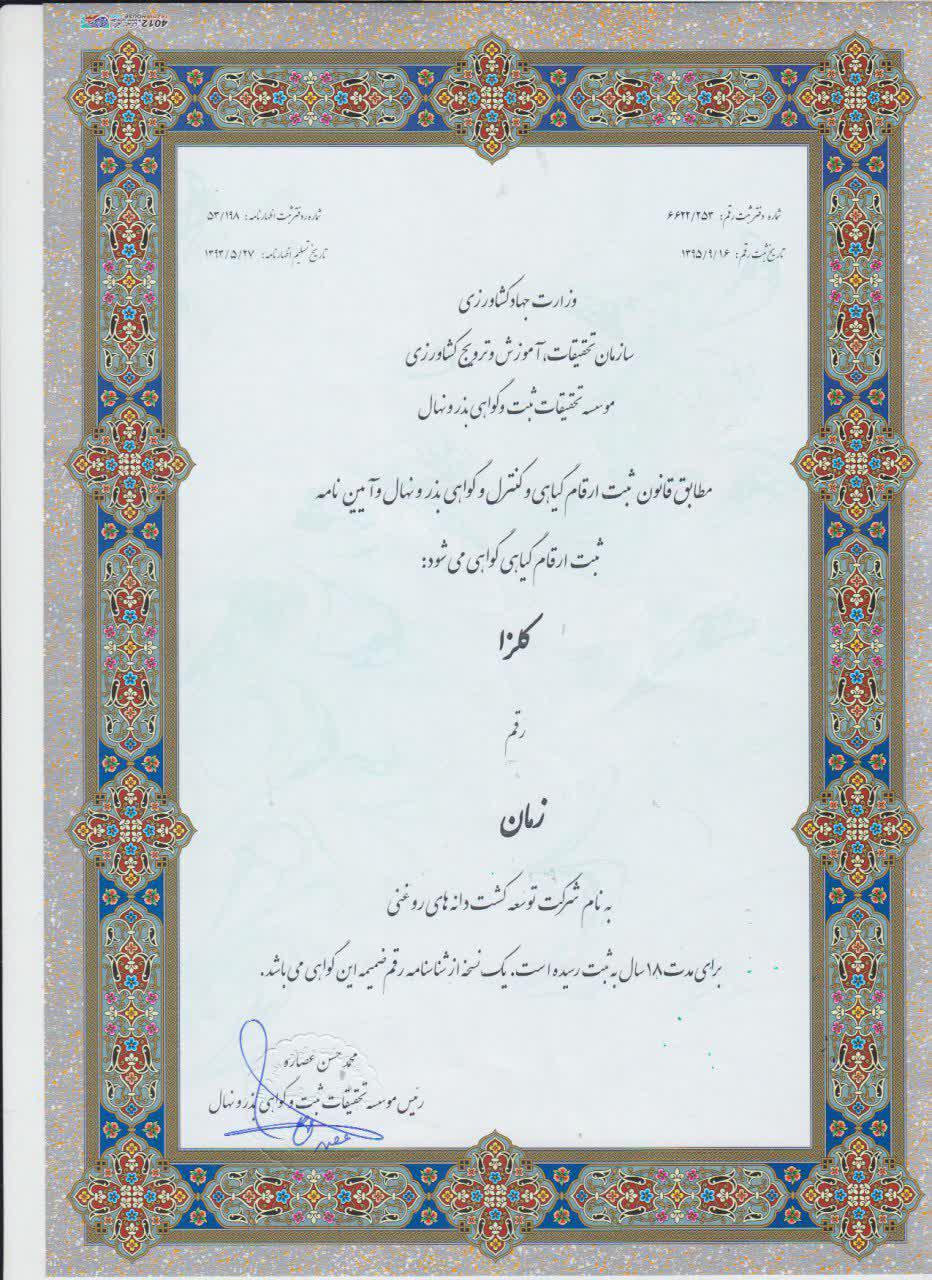 شماره دفتر ثبت رقم: ۶۶۲۲/۲۵۳
تاریخ ثبت رقم: ۱۳۹۵/۹/۱۶
شماره دفتر ثبت اظهارنامه: ۵۳/۱۹۸
تاریخ تسلیم اظهارنامه: ۱۳۹۳/۵/۲۷
وزارت جهاد کشاورزی
سازمان تحقیقات، آموزش و ترویج کشاورزی
موسسه تحقیقات ثبت و گواهی بذر و نهال
مطابق قانون ثبت ارقام گیاهی و کنترل و گواهی بذر و نهال و آیین نامه
ثبت ارقام گیاهی گواهی می شود:
کلزا
رقم
زمان
به نام شرکت توسعه کشت دانه های روغنی
برای مدت ۱۸ سال به ثبت رسیده است. یک نسخه از شناسنامه رقم ضمیمه این گواهی می باشد.
محمد حسن عصاره
رئیس موسسه تحقیقات ثبت و گواهی بذر و نهال
4012